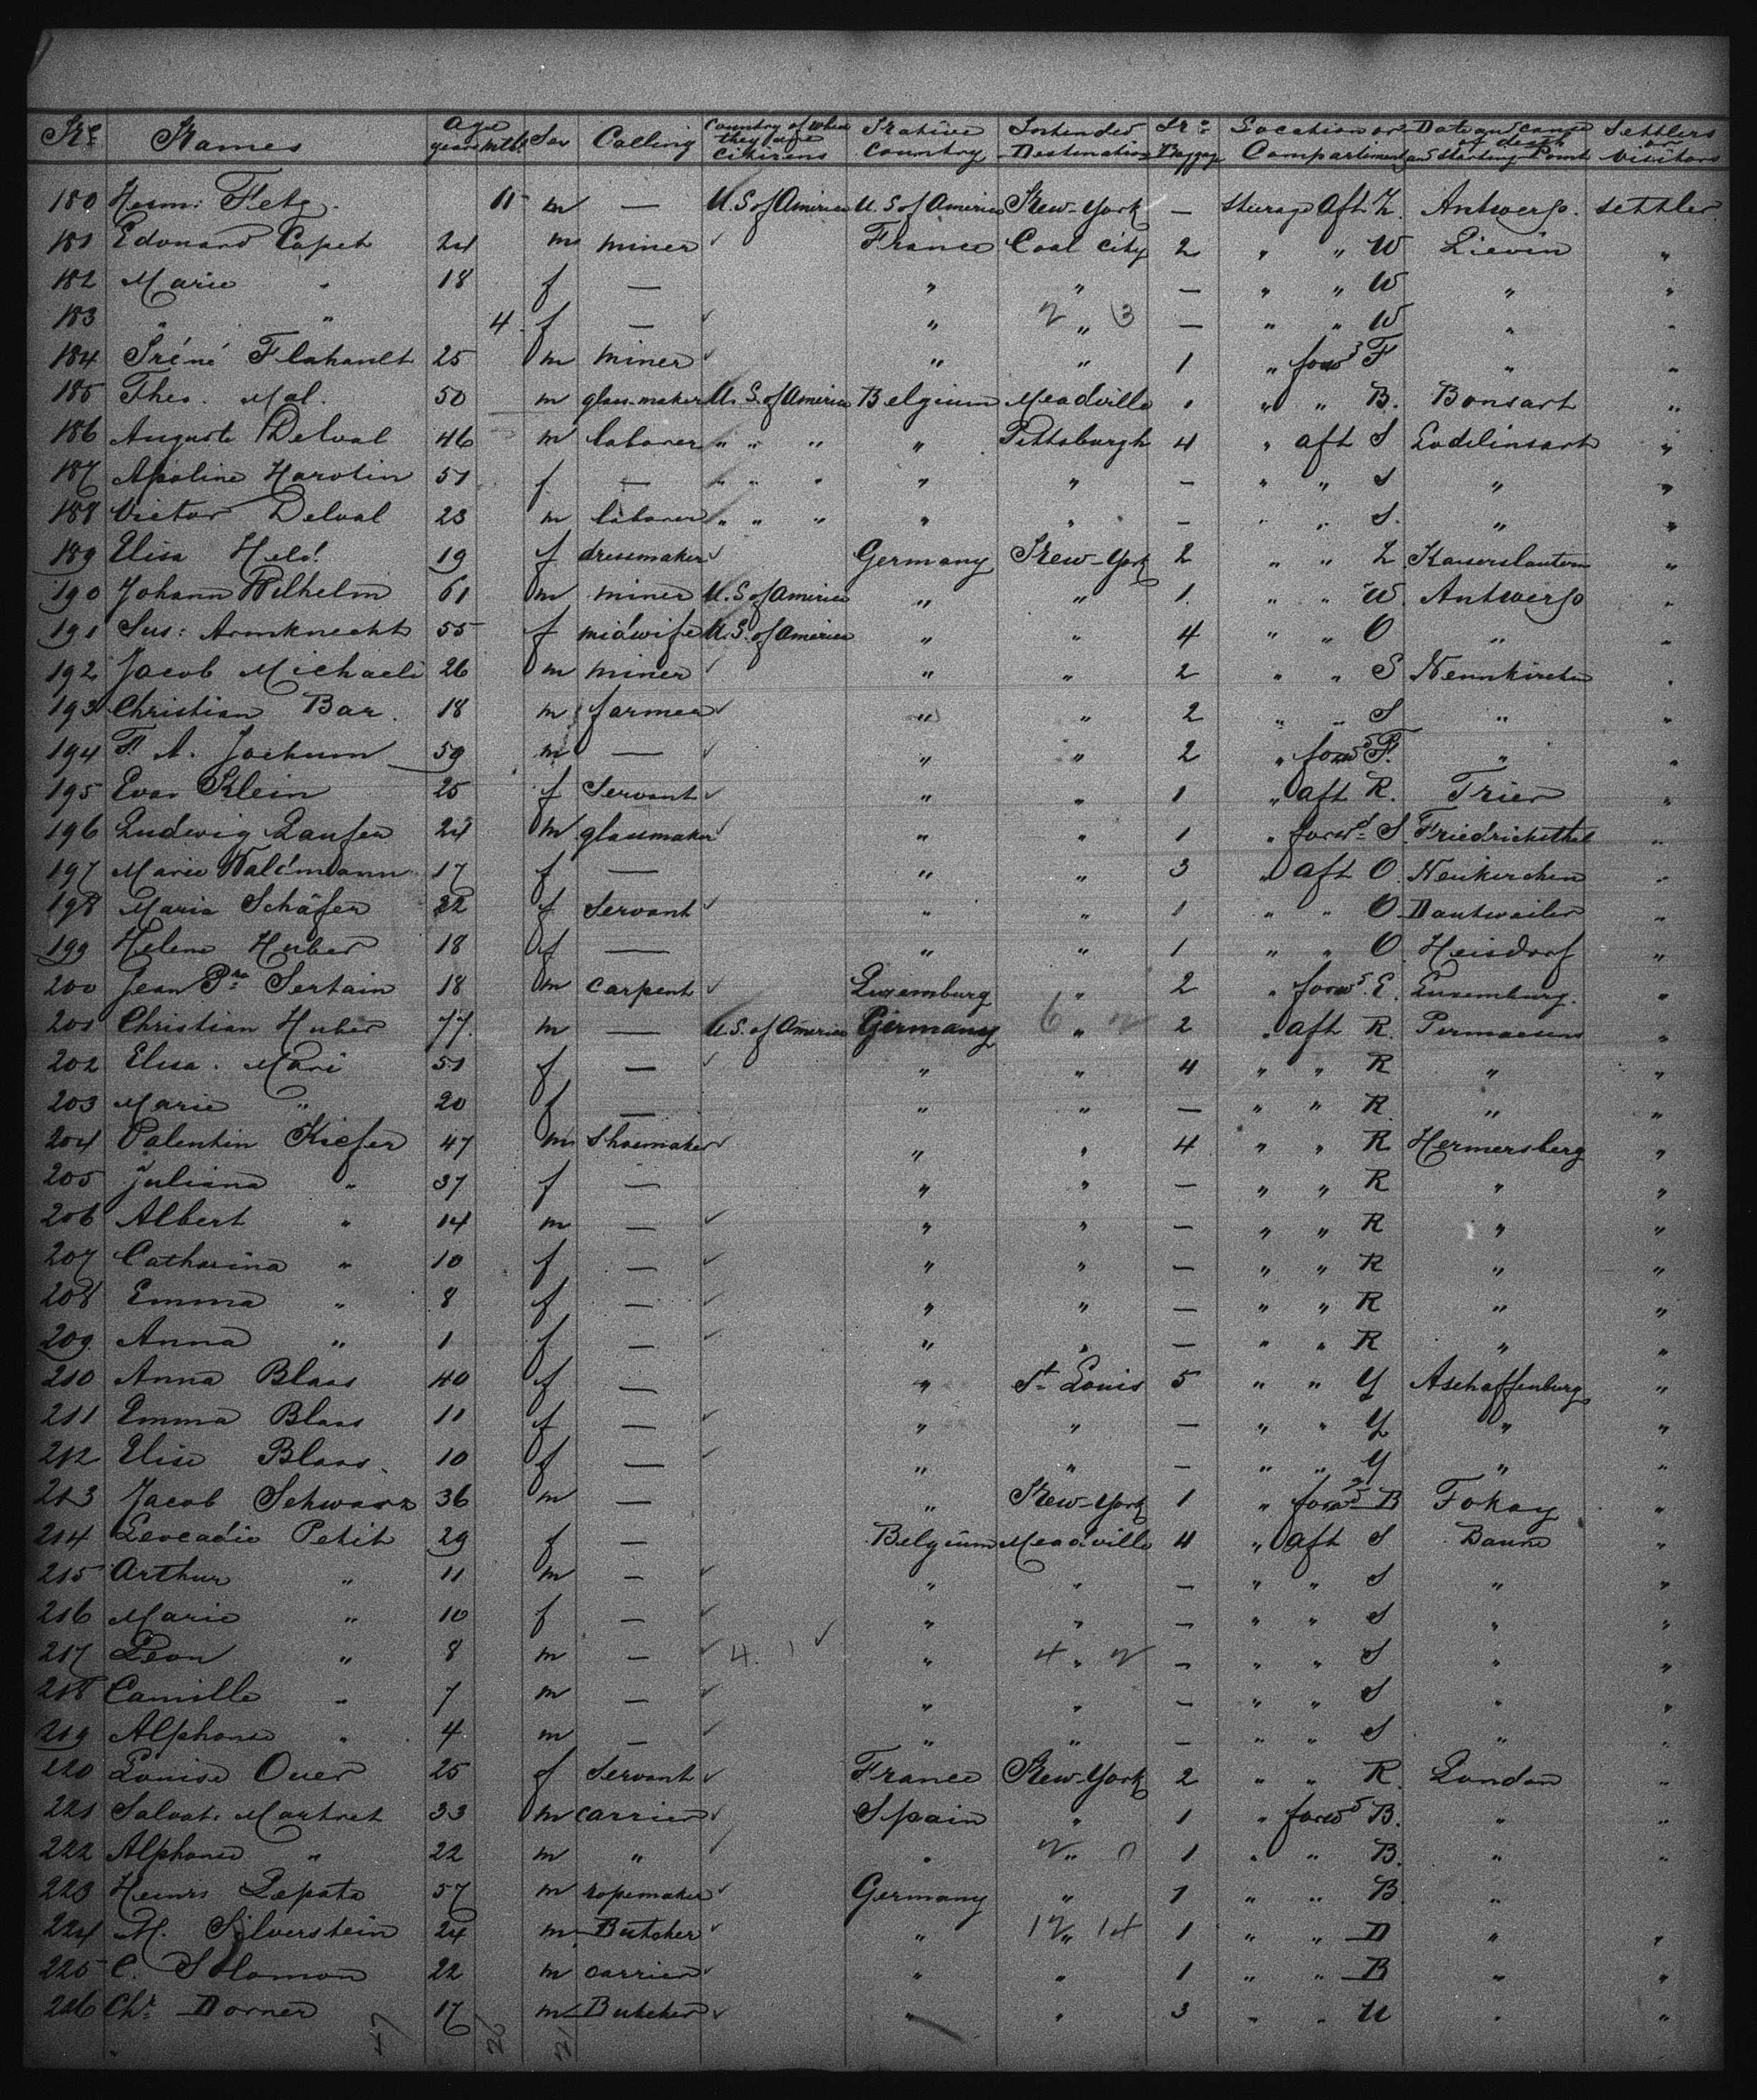 Nr Names Age years mths Sex Calling Country of which they are citizens Native Country Intended Destination Nr Baggage Location or Compartiment Date and cause of death and Starting Point Settlers or Visitors
180 Herm: Fetz. 11 m — U.S of America U.S of America New-York — Steerage Aft Z. Antwerp. settler
181 Edouard Capet 24 m miner ✓ France Coal City 2 " " W Lievin "
182 Marie " 18 f — " " — " " W " "
183 " " 4 f — ✓ " 2 " 3 — " " W " "
184 Iréné Flahault 25 m miner ✓ " " 1 " forwd F " "
185 Theo. Mal. 50 m glass-maker U.S. of America Belgium Meadville 1 " " B. Bonsart "
186 Auguste Delval 46 m laborer " " " " Pittsburgh 4 " aft S Lodelinsart "
187 Apoline Harotin 51 f — " " " " " — " " S " "
188 Victor Delval 23 m laborer " " " " " — " " S. " "
189 Elisa Held 19 f dressmaker ✓ Germany New-York 2 " " Z Kaiserslautern "
190 Johann Wilhelm 61 m miner U.S of America " " 1. " " W. Antwerp "
191 Sus: Armknecht 55 f midwife U.S. of America " " 4 " " O " "
192 Jacob Michaeli 26 m miner ✓ " " 2 " " S Nennkirchen "
193 Christian Bar. 18 m farmer ✓ " " 2 " " S " "
194 F. A. Jochum 59 m — ✓ " " 2 " forwd F. " "
195 Eva Klein 25 f Servant ✓ " " 1 " aft R. Trier "
196 Ludwig Laufer 24 m glassmaker ✓ " " 1 " forwd S. Friedrichsthal "
197 Marie Waldmann 17 f — " " 3 " aft O. Neukirchen "
198 Maria Schäfer 22 f Servant ✓ " " 1 " " O Dautweiler "
199 Helene Huber 18 f — " " 1 " " O. Heisdorf "
200 Jean Pre Sertain 18 m carpent ✓ Luxemburg " 2 " forwd. E. Luxemburg. "
201 Christian Huber 77. m — U.S. of America Germany 6 " 2 2 " aft R. Pirmasens "
202 Elisa. Mari 51 f — ✓ " " 4 " " R " "
203 Marie " 20 f — " " — " " R " "
204 Valentin Kiefer 47 m shoemaker ✓ " " 4 " " R Hermersberg "
205 Juliana " 37 f — " " — " " R " "
206 Albert " 14 m — ✓ " " — " " R " "
207 Catharina " 10 f — ✓ " " — " " R " "
208 Emma " 8 f — ✓ " " — " " R " "
209 Anna " 1 f — ✓ " " — " " R " "
210 Anna Blaas 40 f — " St Louis 5 " " Y Aschaffenburg "
211 Emma Blaas 11 f — ✓ " " — " " Y " "
212 Elise Blaas. 10 f — ✓ " " — " " Y " "
213 Jacob Schwarz 36 m — " New-York 1 " forwd B Tokay "
214 Leocadie Petit 29 f — Belgium Meadville 4 " aft S "
215 Arthur " 11 m — ✓ " " — " " S " "
216 Marie " 10 f — ✓ " " — " " S " "
217 Leon " 8 m — ✓ 4. 1 ✓ " 4 " 2 — " " S " "
218 Camille " 7 m — ✓ " " — " " S " "
219 Alphonse " 4 m — ✓ " " — " " S " "
220 Louise Ouer 25 f Servant ✓ France New-York 2 " " R. London "
221 Salvat. Martret 33 m carrier ✓ Spain " 1 " forwd B. " "
222 Alphonse " 22 m " ✓ " 2 " 0 1 " " B. " "
223 Heinrs Lepata 57 m ropemaker ✓ Germany " 1 " " B " "
224 M. Silverstein 24 m Butcher ✓ " 12 " 14 1 " " D " "
225 C. Solomon 22 m carrier ✓ " " 1 " " B " "
226 Chr. Dorner 17 m Butcher ✓ " " 3 " " U " "
47 26 21